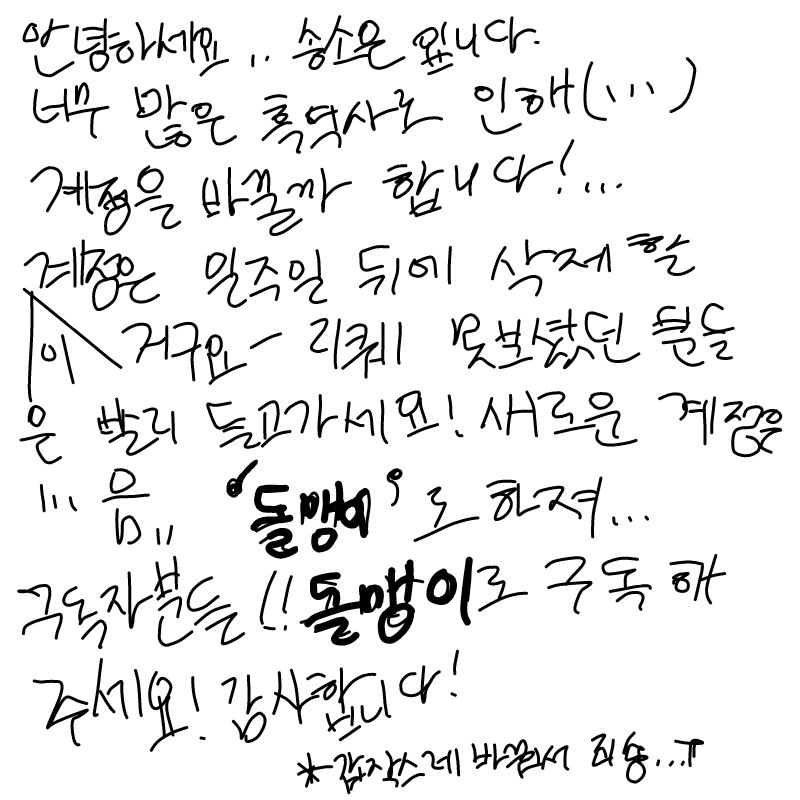 안녕하세요.. 송소은 입니다.
너무 많은 흑역사로 인해(...)
계정을 바꿀까 합니다!...
계정은 일주일 뒤에 삭제 할
이 거구요- 리퀘 못보셨던 분들
은 빨리 들고가세요! 새로운 계정은
... 음.. '돌맹이'로 하져...
구독자분들!! 돌맹이로 구독 해
주세요! 감사합니다!
*갑작스레 바꿔서 죄송...ㅠ